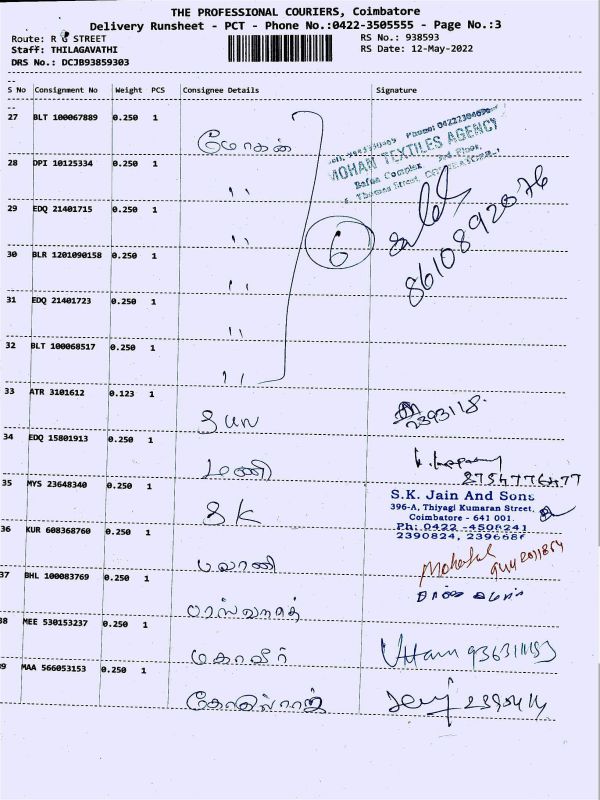 THE PROFESSIONAL COURIERS, Coimbatore
Delivery Runsheet - PCT - Phone No.:0422-3505555 - Page No.:3
Route: R G STREET
RS No.: 938593
Staff: THILAGAVATHI
RS Date: 12-May-2022
DRS No.: DCJB93859303
S No Consignment No Weight PCS Consignee Details Signature
27 BLT 100067889 0.250 1 மோகன்
MOHAN TEXTILES AGENCY
Complex 3rd Floor,
Thomas Street,
28 DPI 10125334 0.250 1 ,,
29 EDQ 21401715 0.250 1 ,, 6
8610892076
30 BLR 1201090158 0.250 1 ,,
31 EDQ 21401723 0.250 1 ,,
32 BLT 100068517 0.250 1 ,,
33 ATR 3101612 0.123 1 2393118
34 EDQ 15801913 0.250 1 மணி
35 MYS 23648340 0.250 1 SK
S.K. Jain And Sons
396-A, Thiyagi Kumaran Street,
Coimbatore - 641 001.
Ph: 0422 -4506241
2390824,
36 KUR 608368760 0.250 1 பவானி
37 BHL 100083769 0.250 1
38 MEE 530153237 0.250 1 மகாவீர் Uttam
39 MAA 566053153 0.250 1